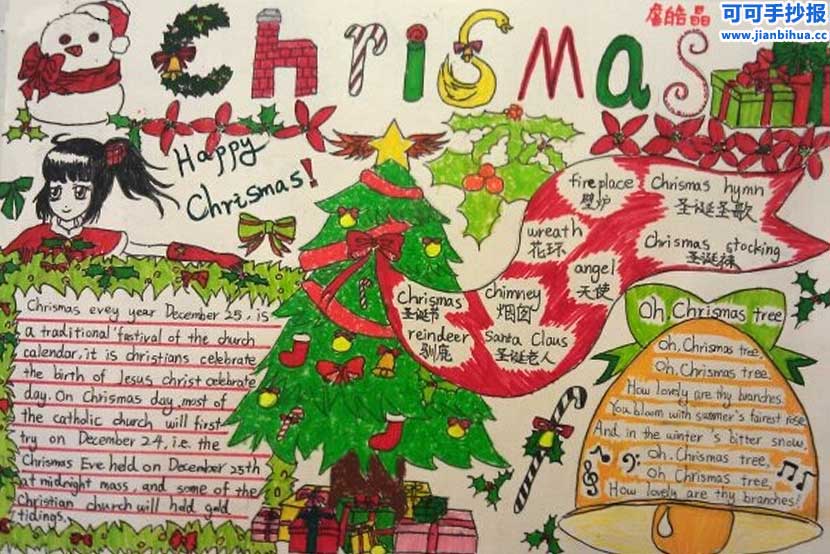 可可手抄报
www.jianbihua.cc
詹皓晶
Chrismas
Happy
Chrismas!
fireplace
壁炉
Chrismas hymn
圣诞圣歌
wreath
花环
Chrismas stocking
圣诞袜
angel
天使
Chrismas
圣诞节
chimney
烟囱
reindeer
驯鹿
Santa Claus
圣诞老人
Chrismas evey year December 25, is
a traditional festival of the church
calendar, it is christians celebrate
the birth of Jesus christ celebrate
day. On Chrismas day, most of
the catholic church will first
try on December 24, i.e. the
Chrismas Eve held on December 25th
at midnight mass, and some of the
Christian church will hold gold
tidings.
Oh, Chrismas tree
Oh, Chrismas tree,
Oh, Chrismas tree,
How lovely are thy branches.
You bloom with summer's fairest rose
And in the winter's bitter snow.
Oh, Chrismas tree,
Oh Chrismas tree,
How lovely are thy branches!